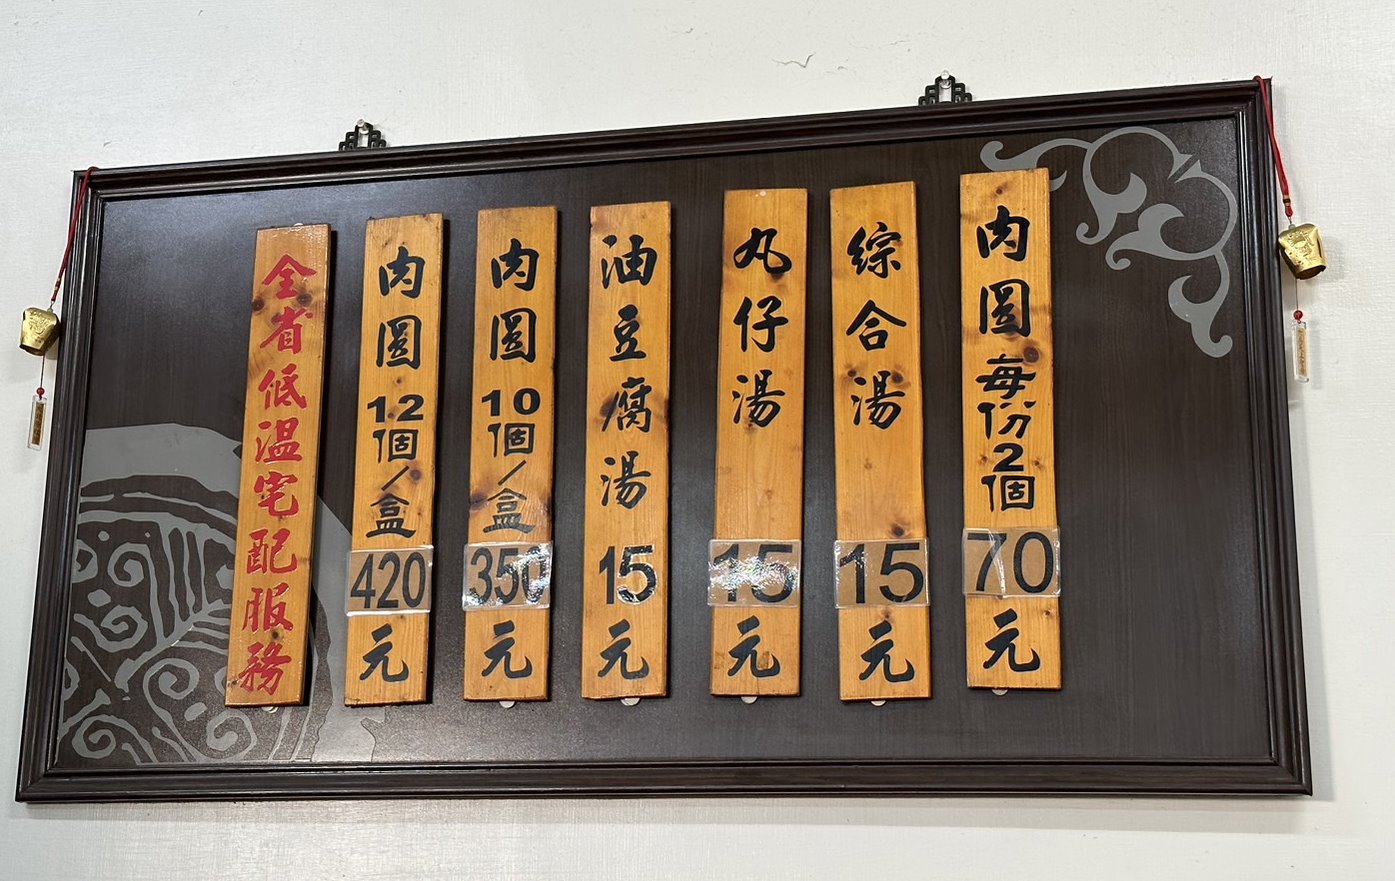 肉圓每份2個70元
綜合湯15元
丸仔湯15元
油豆腐湯15元
肉圓10個/盒350元
肉圓12個/盒420元
全省低溫宅配服務